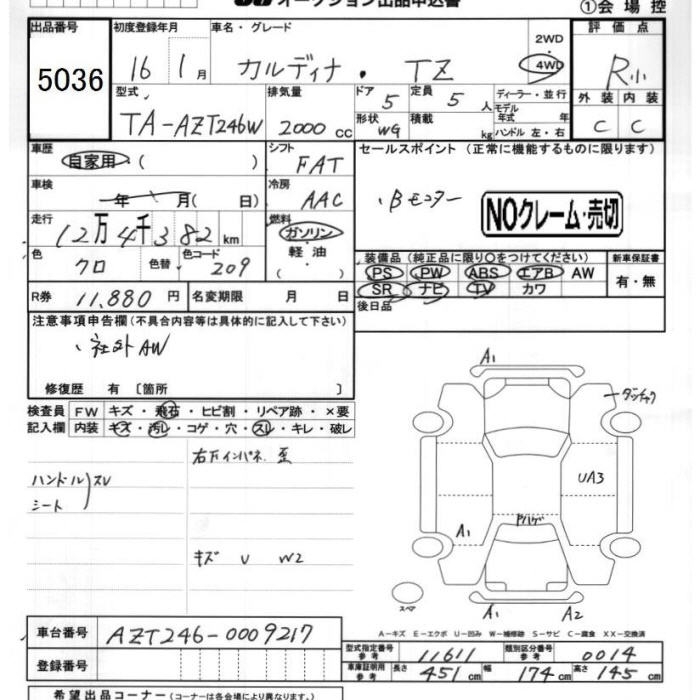 オークション出品申込書
①会場控
出品番号 初度登録年月 車名・グレード 評価点
5036 16 1月 カルディナ・TZ 2WD 4WD R小
型式 排気量 ドア 5 定員 5人 ディーラー・並行 外装 内装
TA-AZT246W 2000cc 形状 WG 積載 kg モデル年式 年 ハンドル 左・右 C C
車歴 自家用 ( ) シフト FAT セールスポイント (正常に機能するものに限ります)
車検 年 月( 日) 冷房 AAC
Bモニター NOクレーム・売切
走行 12万4千382km 燃料 ガソリン 軽油
色 クロ 色替 色コード 209
装備品(純正品に限り○をつけてください) 新車保証書
PS PW ABS エアB AW 有・無
SR ナビ TV カワ
R券 11,880円 名変期限 月 日 後日品
注意事項申告欄(不具合内容等は具体的に記入して下さい)
社外AW
修復歴 有 〔箇所 〕
検査員 FW キズ・飛石・ヒビ割・リペア跡・×要
記入欄 内装 キズ・汚レ・コゲ・穴・スレ・キレ・破レ
ハンドル スレ
シート
キズ U W2
A1
UA3
A1
スペア
A1 A2
A-キズ E-エクボ U-凹み W-補修跡 S-サビ C-腐食 XX-交換済
車台番号 AZT246-0009217
登録番号
型式指定番号 参考 11611 類別区分番号 参考 0014
車庫証明用 参考 長さ 451cm 幅 174cm 高さ 145cm
希望出品コーナー(コーナーは各会場により異なります。)